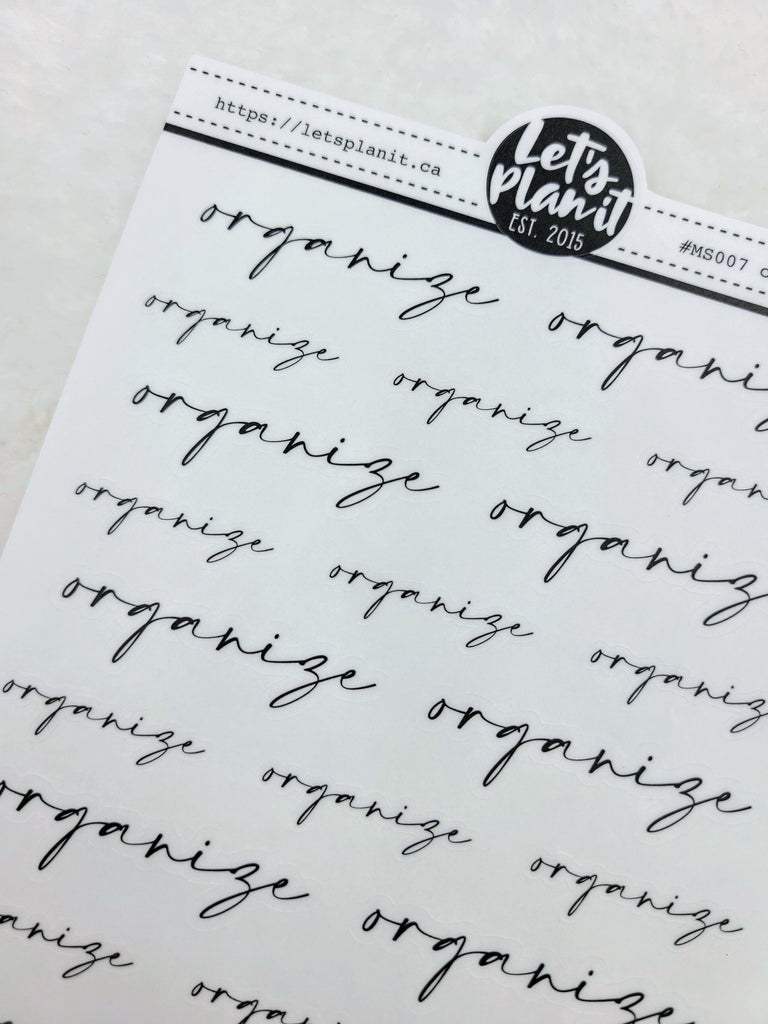 https://letsplanit.ca
Let's
planit
EST. 2015
#MS007
organize organiz
organize organize organ
organize organize
organize organize organiz
organize organize
organize organize organize
organize organize
anize organize